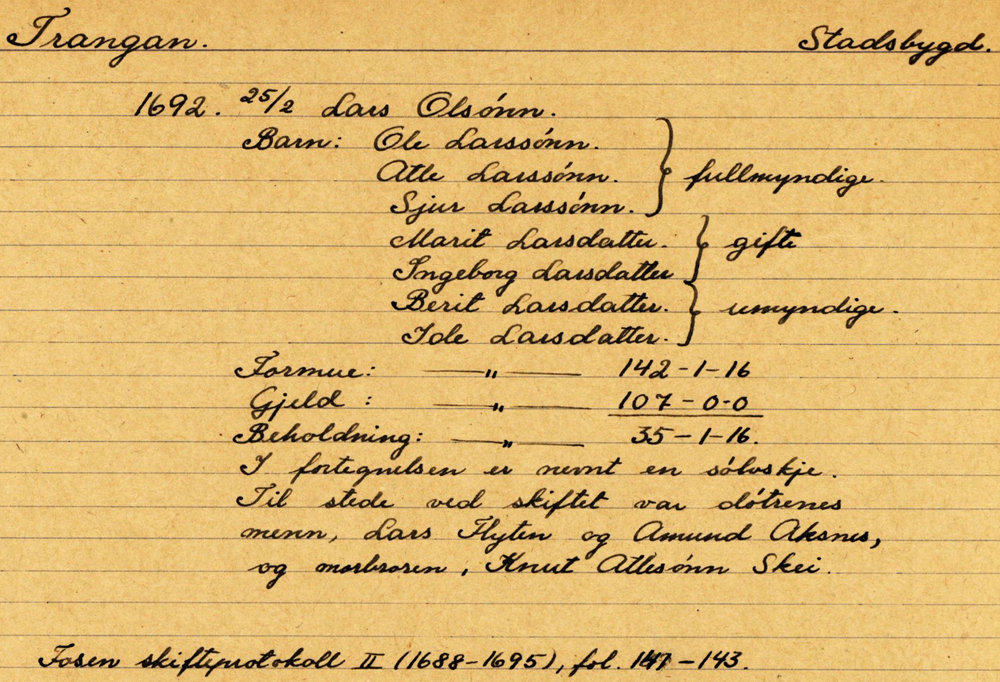 Trangan. Stadsbygd.
1692. 25/2 Lars Olsónn.
Barn: Ole Larssónn.
Atle Larssónn. } fullmyndige.
Sjur Larssónn.
Marit Larsdatter. } gifte
Ingeborg Larsdatter
Berit Larsdatter. } umyndige.
Ide Larsdatter.
Formue: —— " —— 142-1-16
Gjeld : —— " —— 107-0-0
Beholdning: —— " —— 35-1-16.
I fortegnelsen er nevnt en sólvskje.
Til stede ved skiftet var dótrenes
menn, Lars Flyten og Amund Aksnes,
og morbroren, Knut Atlesónn Skei.
Fosen skifteprotokoll II (1688-1695), fol. -143.